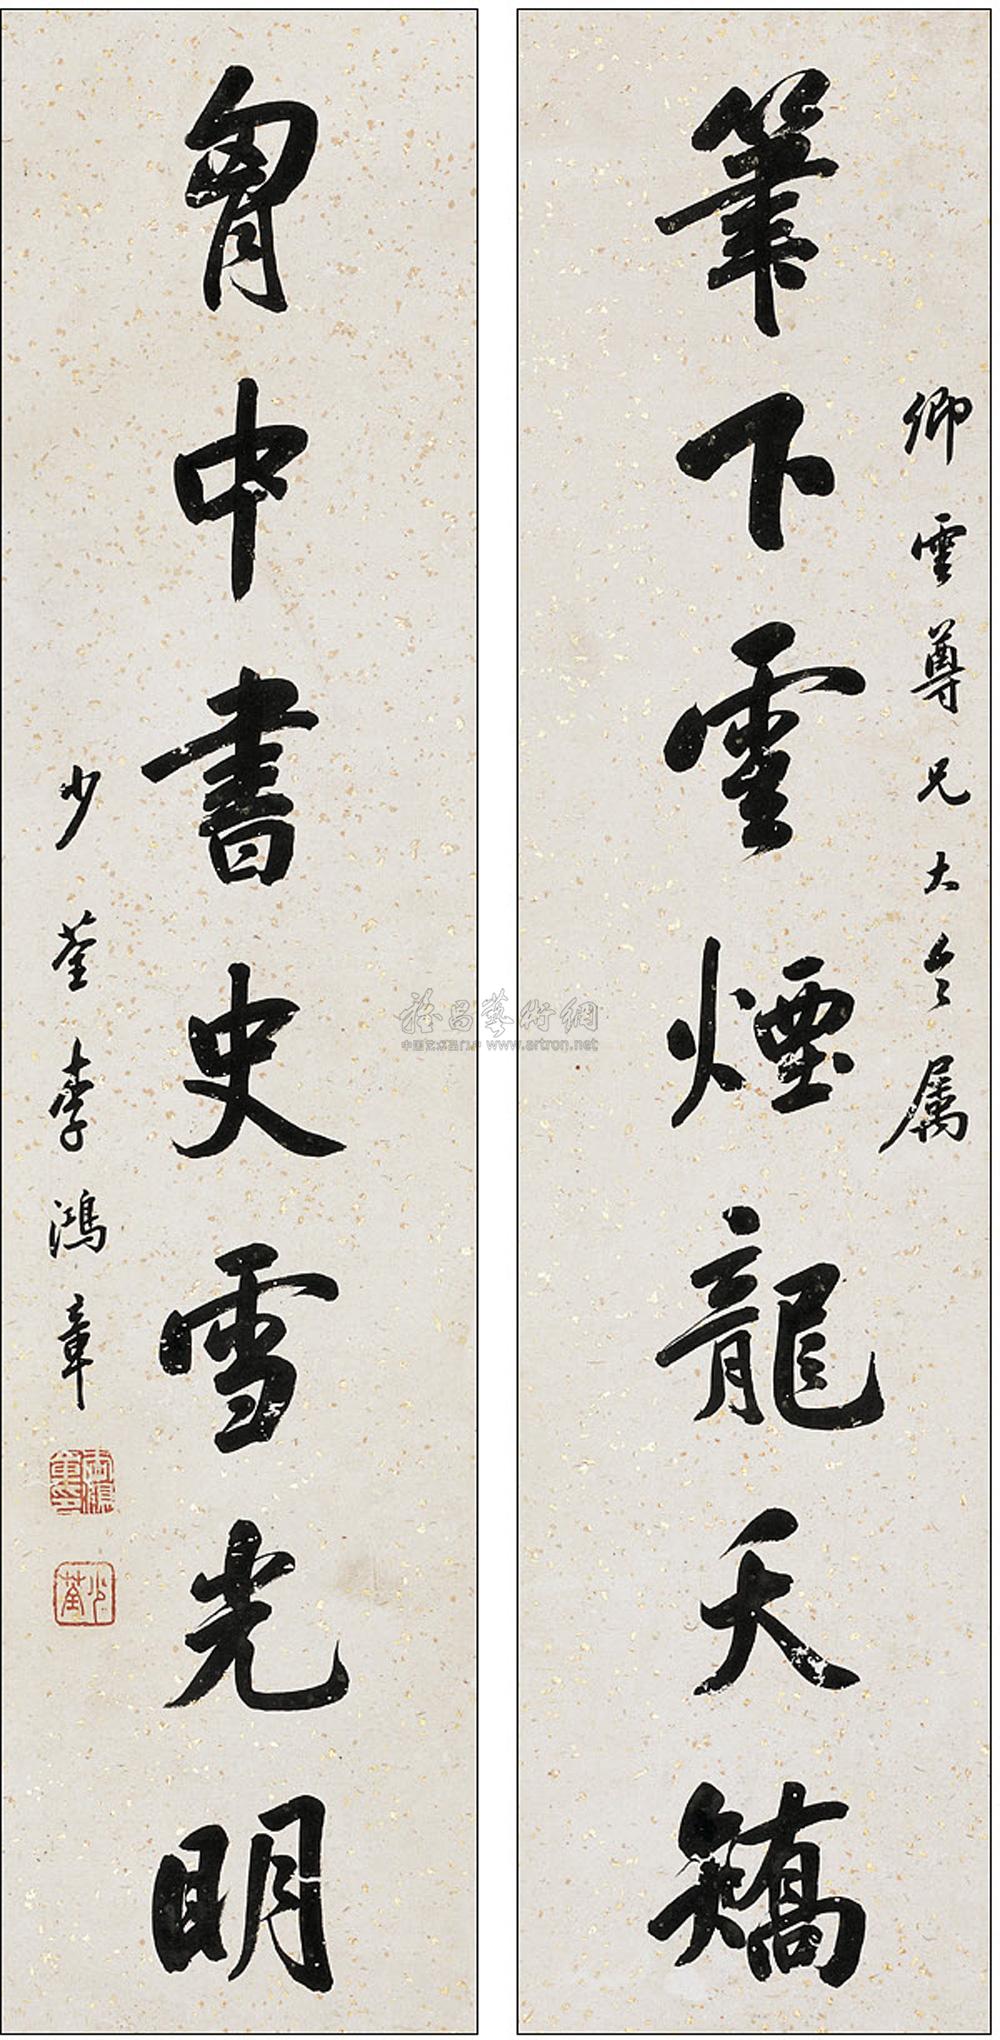 筆下雲煙龍夭矯
卿雲尊兄大令属
胷中書史雪光明
少荃李鴻章
少荃
雅昌藝術網
中国艺术品门户 www.artron.net